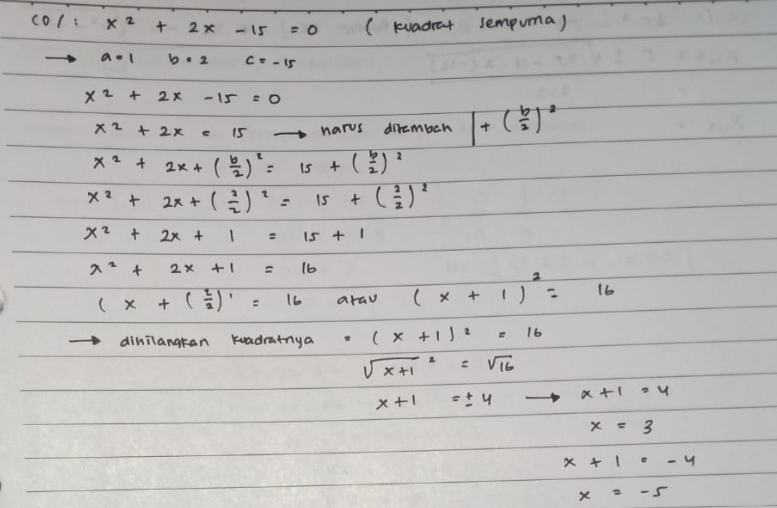 CO/: x² + 2x - 15 = 0 ( kuadrat sempurna )
→ a = 1 b = 2 c = -15
x² + 2x - 15 = 0
x² + 2x = 15 → harus ditambah | + (b/2)²
x² + 2x + (b/2)² = 15 + (b/2)²
x² + 2x + (2/2)² = 15 + (2/2)²
x² + 2x + 1 = 15 + 1
x² + 2x + 1 = 16
( x + (2/2)' = 16 atau ( x + 1 )² = 16
→ dihilangkan kuadratnya = ( x + 1 )² = 16
√x+1 ² = √16
x+1 = ± 4 → x + 1 = 4
x = 3
x + 1 = -4
x = -5